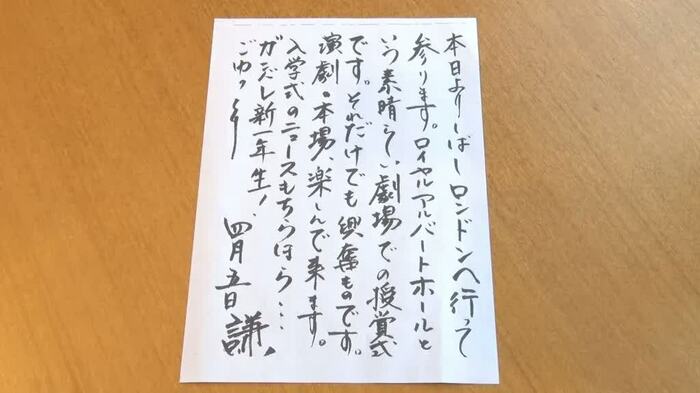 本日よりしばしロンドンへ行って
参ります。ロイヤルアルバートホールと
いう素晴らしい劇場での授賞式
です。それだけでも興奮ものです。
演劇の本場、楽しんで来ます。
入学式のニュースもちらほら...
ガンバレ新一年生!
ごゆっくり
四月五日 謙